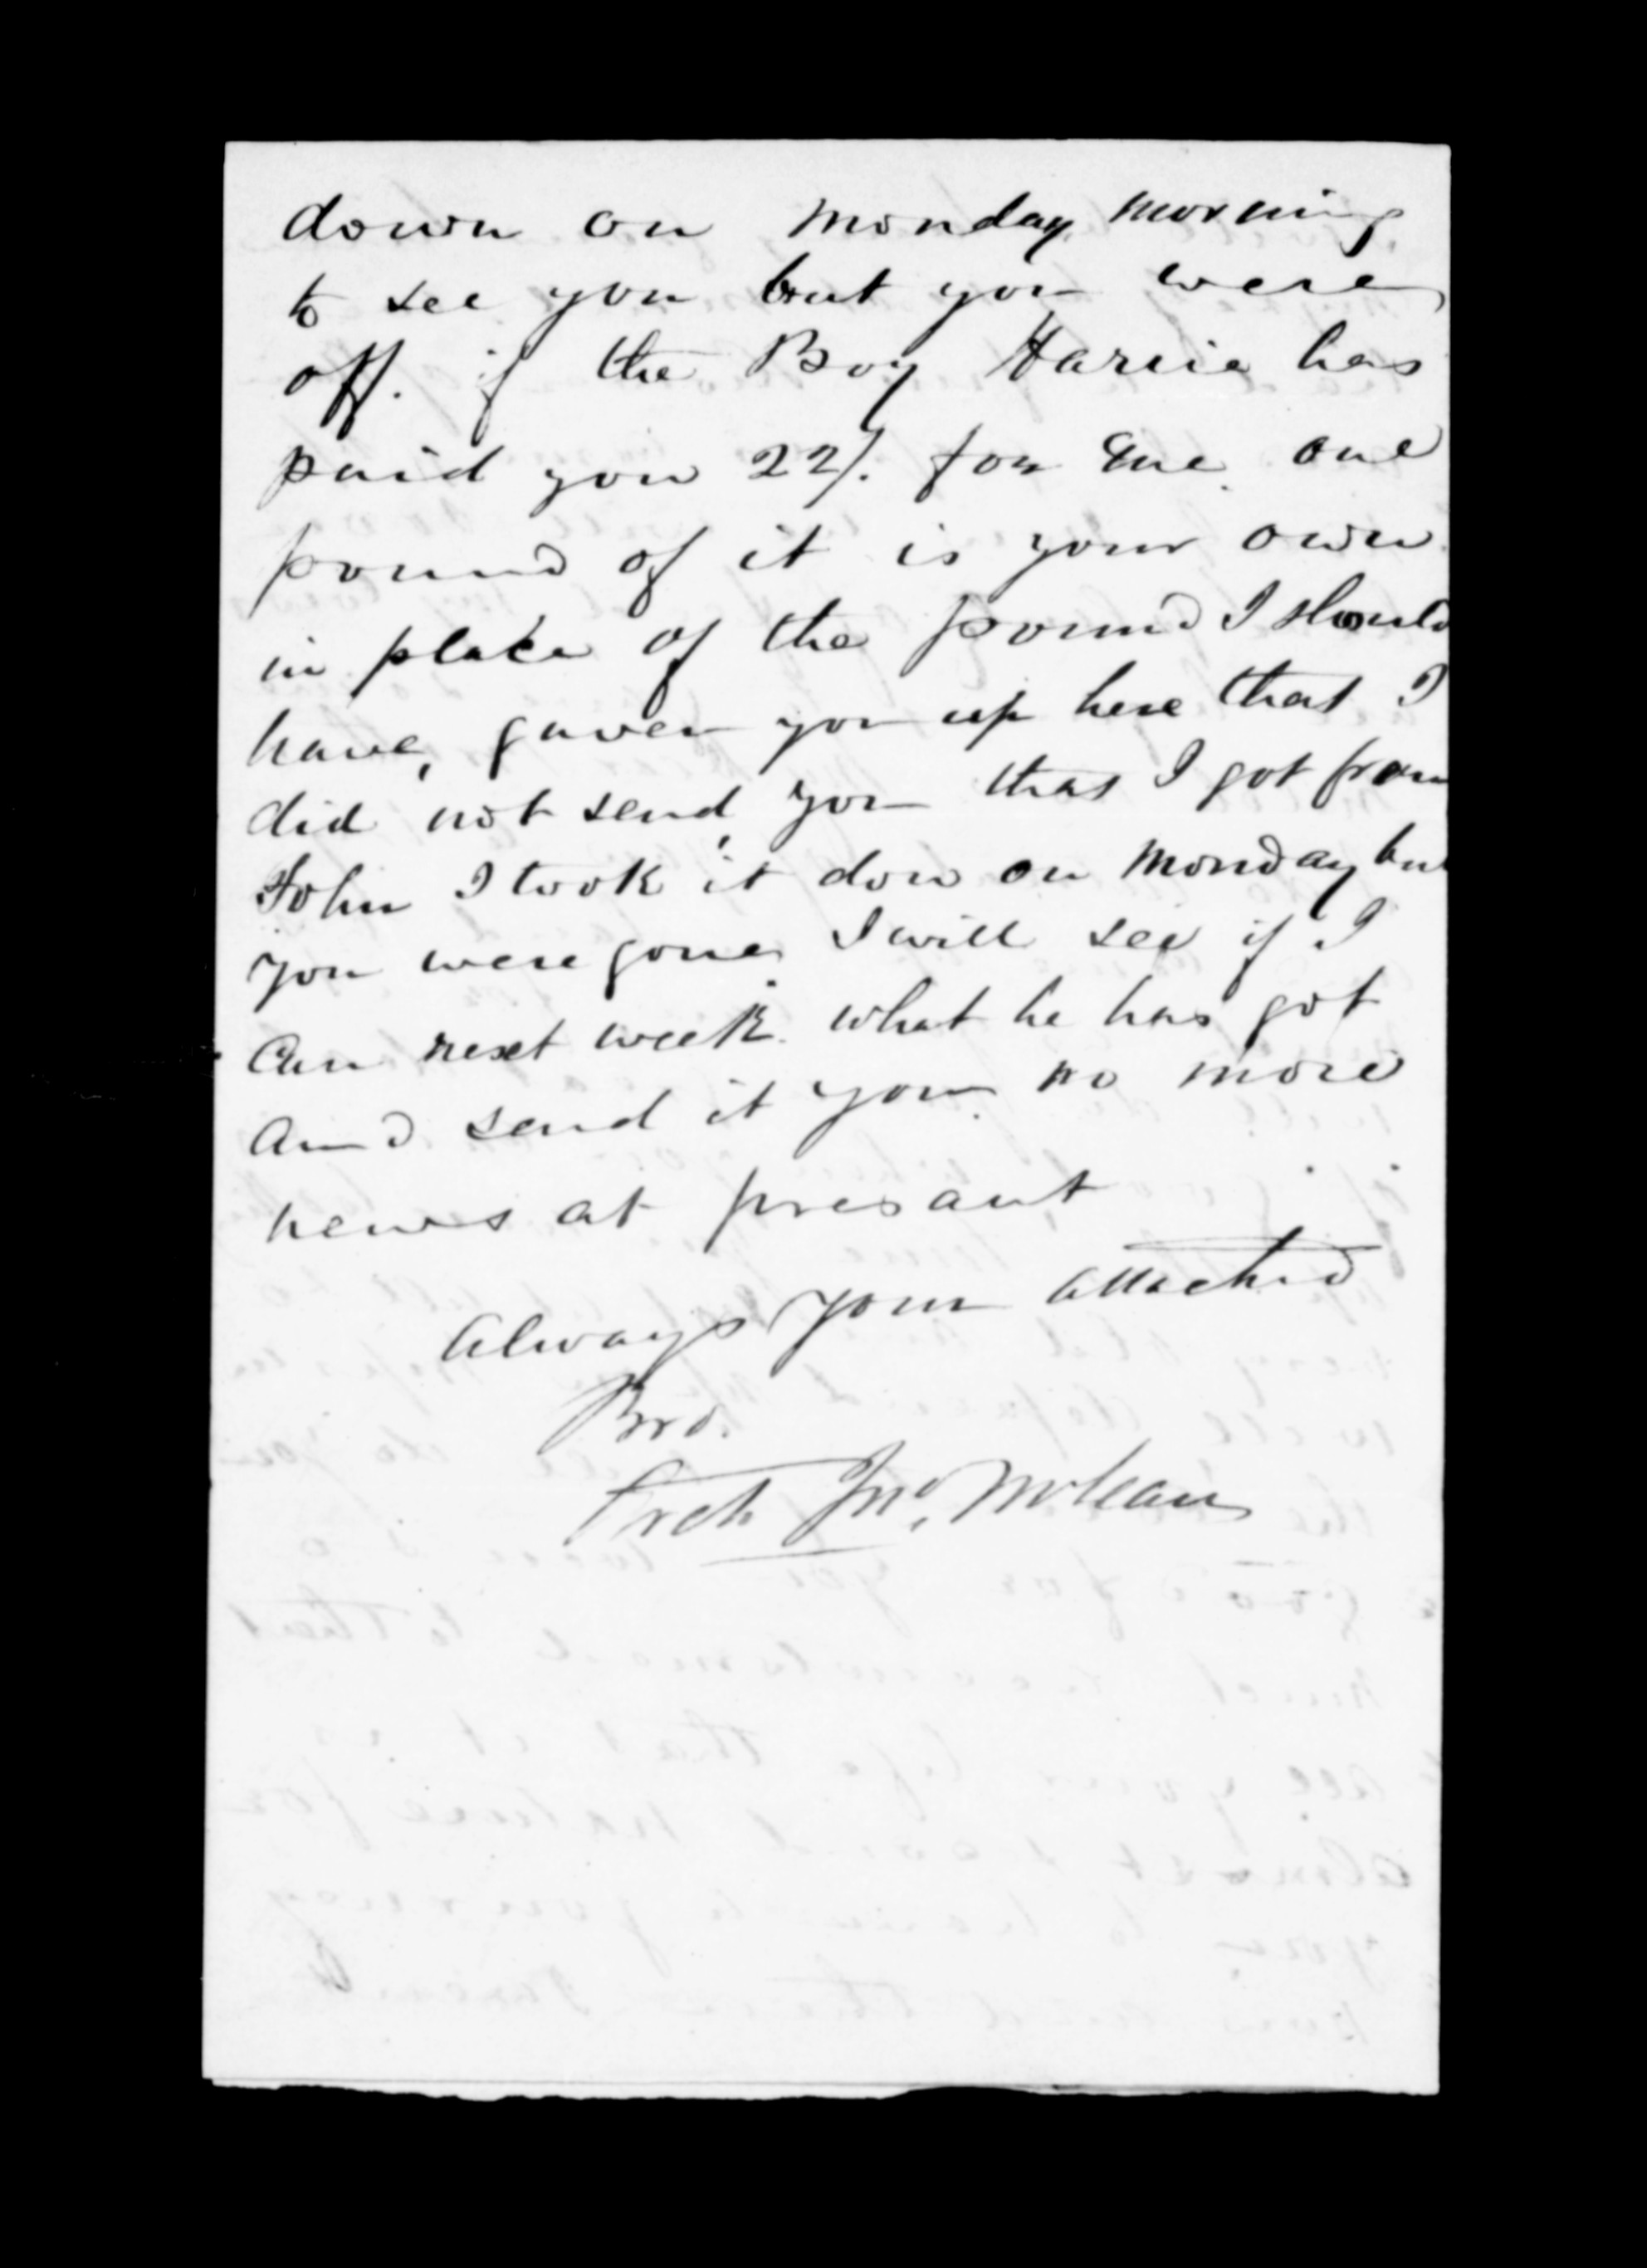 down on Monday morning
to see you but you were
off. if the Boy Harrie has
paid you 22/. for me. one
pound of it is your own
in place of the pound I should
have, gaven you up here that I
did not send, you that I got from
John I took it down on Monday but
you were gone, I will see if I
Can next week. what he has got
And send it you. no more
news at presant
Always your attached
Bro.
Arch Jno. McLean